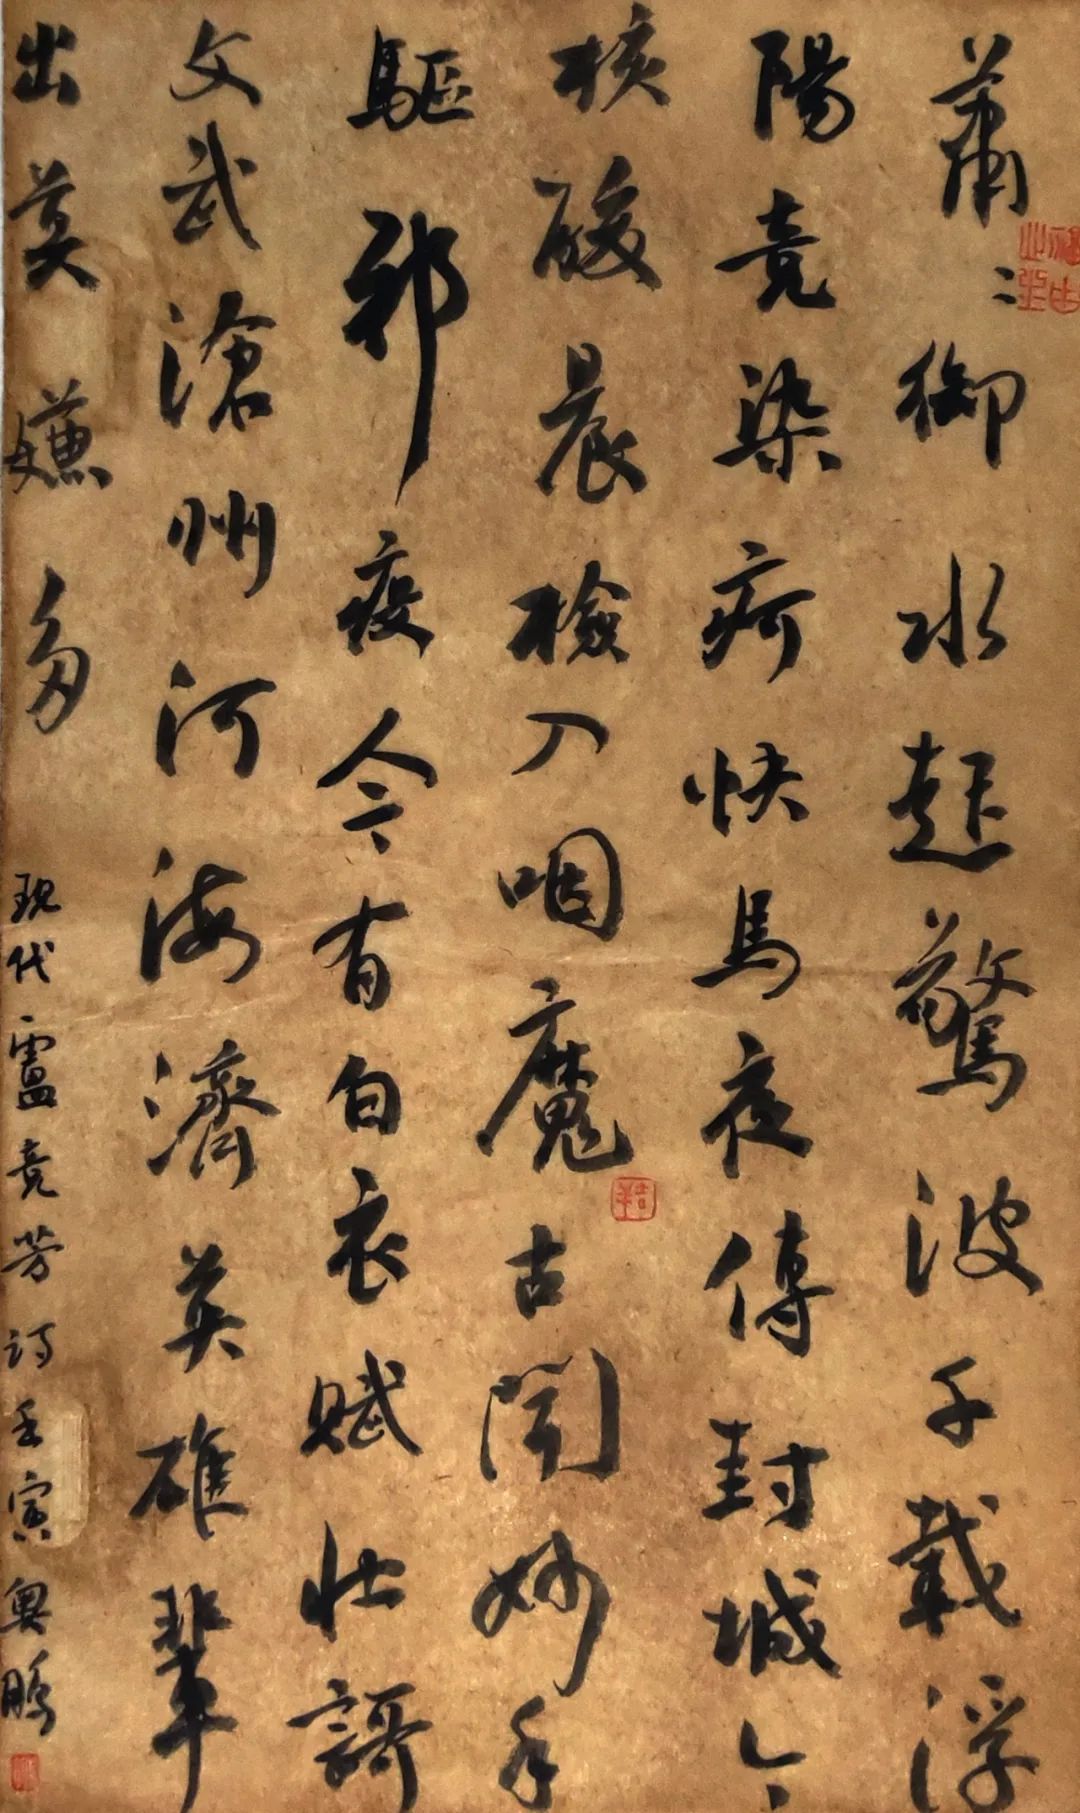 蕭〻御水起驚波千載浮
陽竟染疴快馬夜傳封城令
核酸晨檢入咽魔古聞妙手
驅邪疫今有白衣賦壯謌
文武滄州河海濟英雄輩
出莫嫌多
現代盧竟芳詩壬寅奥鵬